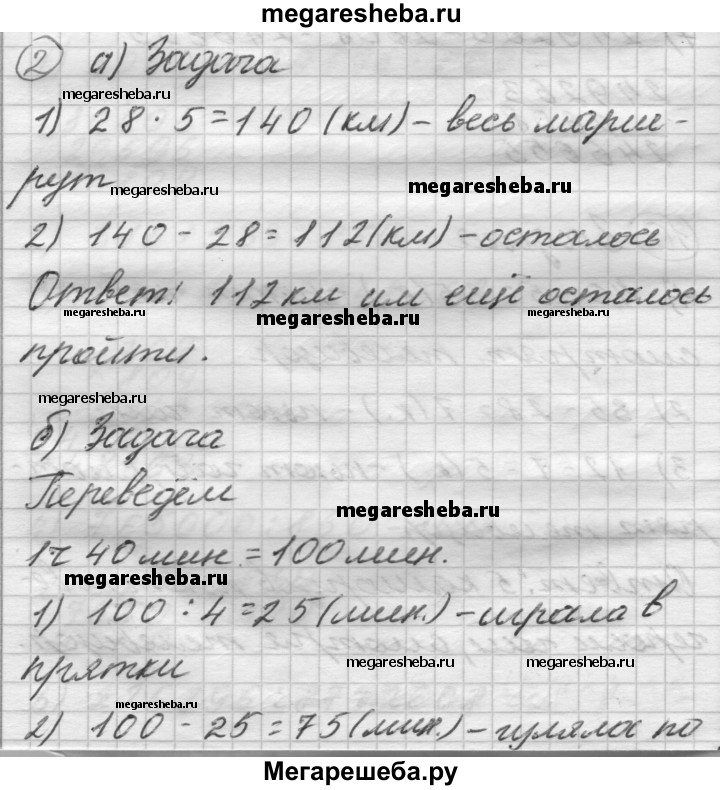 megaresheba.ru
2 а) Задача
megaresheba.ru
1) 28 · 5 = 140 (км) – весь марш-
рут
megaresheba.ru megaresheba.ru
2) 140 - 28 = 112 (км) – осталось
Ответ: 112 км им ещё осталось
megaresheba.ru megaresheba.ru megaresheba.ru
пройти.
megaresheba.ru
б) Задача
Переведём
megaresheba.ru
1ч 40 мин. = 100 мин.
megaresheba.ru
1) 100 : 4 = 25 (мин.) – играла в
прятки
megaresheba.ru megaresheba.ru
megaresheba.ru
2) 100 - 25 = 75 (мин.) – гуляла по
Мегарешеба.ру